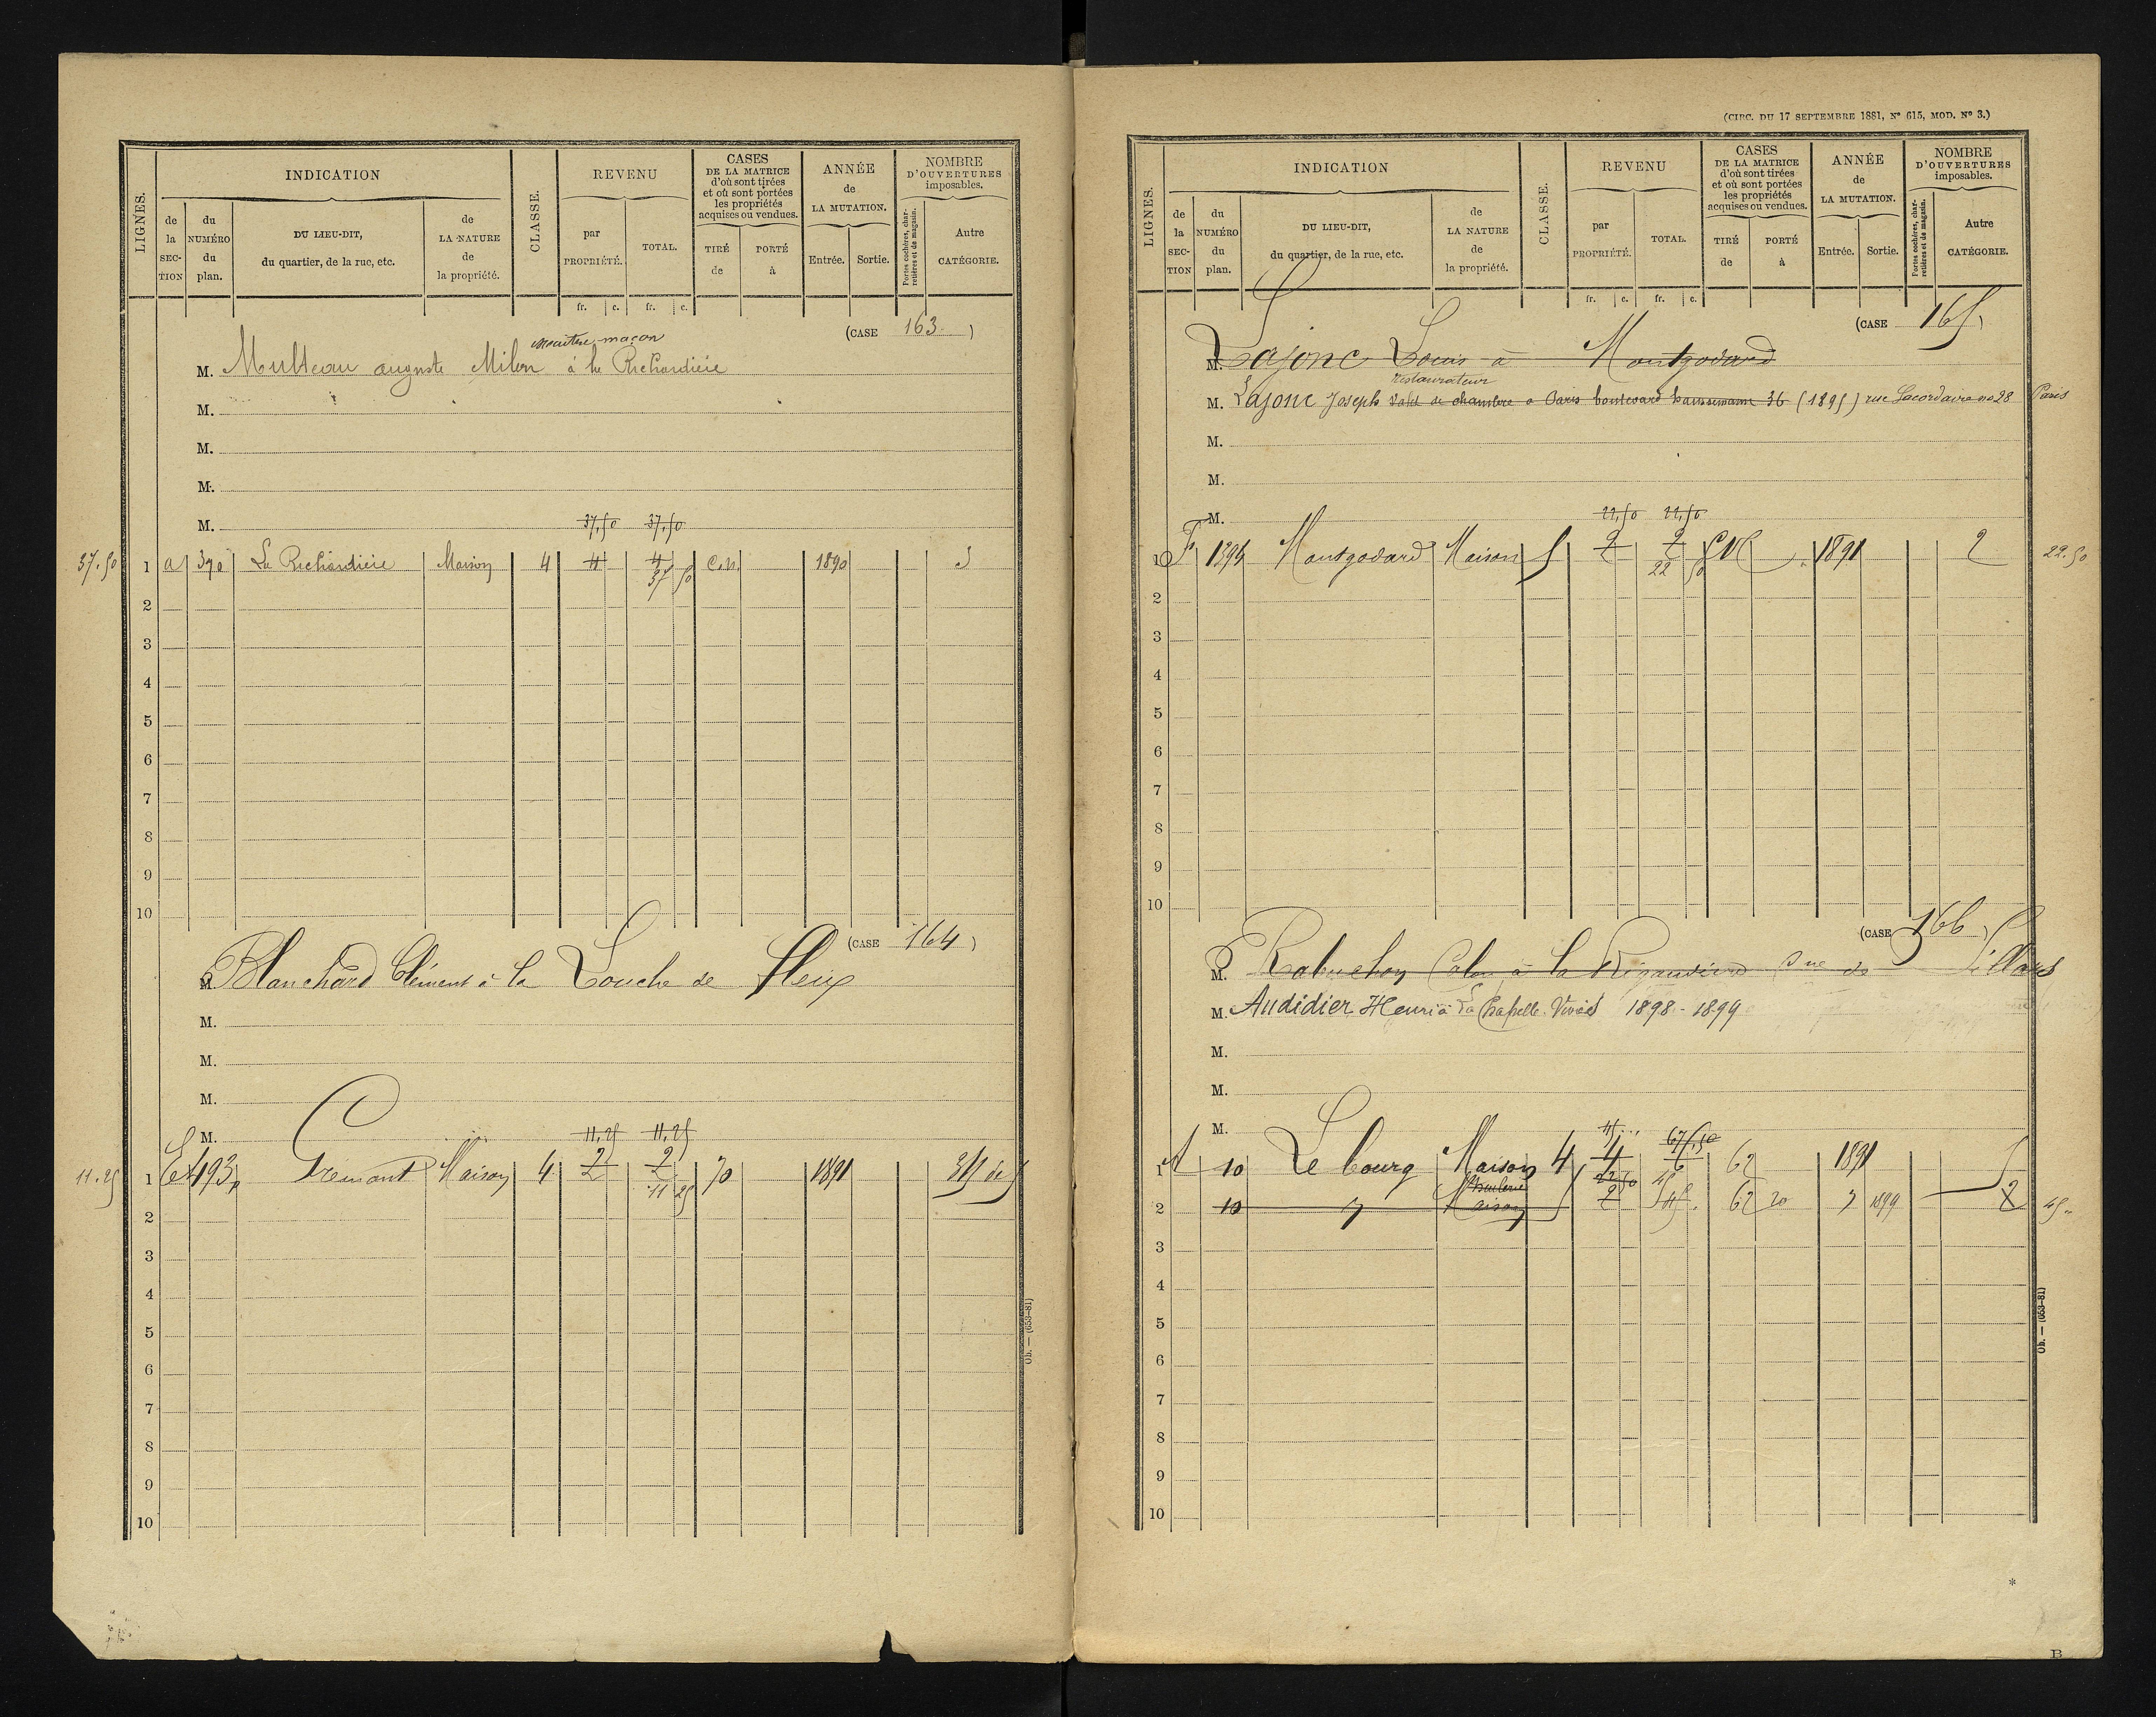 LIGNES.
INDICATION
de la SECTION
du NUMÉRO du plan.
DU LIEU-DIT, du quartier, de la rue, etc.
de LA NATURE de la propriété.
CLASSE.
REVENU
par PROPRIÉTÉ.
TOTAL.
fr. c. fr. c.
CASES DE LA MATRICE d'où sont tirées et où sont portées les propriétés acquises ou vendues.
TIRÉ de
PORTÉ à
ANNÉE de LA MUTATION.
Entrée. Sortie.
NOMBRE D'OUVERTURES imposables.
Portes cochères, charretières et de magasin.
Autre CATÉGORIE.
(CASE 163 )
maître maçon
M. Multeau auguste Milon à la Richardière
M.
M.
M.
M.
37,50 37,50
37.50 1 a 390 La Richardière Maison 4 4 4 C.N. 1890 5
37 50
2
3
4
5
6
7
8
9
10
(CASE 164 )
M. Blanchard Clément à la Touche de fleix
M.
M.
M.
M.
11,25 11,25
11.25 1 493 Tremont Maison 4 2 2 70 1891
11 25
2
3
4
5
6
7
8
9
10
Ob. — (653-81)
(CIRC. DU 17 SEPTEMBRE 1881, Nº 615, MOD. Nº 3.)
LIGNES.
INDICATION
de la SECTION
du NUMÉRO du plan.
DU LIEU-DIT, du quartier, de la rue, etc.
de LA NATURE de la propriété.
CLASSE.
REVENU
par PROPRIÉTÉ.
TOTAL.
fr. c. fr. c.
CASES DE LA MATRICE d'où sont tirées et où sont portées les propriétés acquises ou vendues.
TIRÉ de
PORTÉ à
ANNÉE de LA MUTATION.
Entrée. Sortie.
NOMBRE D'OUVERTURES imposables.
Portes cochères, charretières et de magasin.
Autre CATÉGORIE.
(CASE 165 )
M. Lajonc Louis à Montgodard
restaurateur
M. Lajonc Joseph Valet de chambre a Paris boulevard haussemann 36 (1895) rue Lacordaire no 28 Paris
M.
M.
M.
22,50 22,50
1 F 1394 Montgodard Maison 5 2 2 CN 1891 2 22.50
22 50
2
3
4
5
6
7
8
9
10
(CASE 166 )
M. à la Rigaudière
M. Audidier Henri à La Chapelle Viviers 1898 - 1899
M.
M.
M.
45 67,50
1 A 10 Le bourg Maison 4 4 6 62 1891 5
22 50 45
2 10 Maison 5 2 45 62 20 1899 2 45
3
4
5
6
7
8
9
10
Ob. — (653-81)
*
B